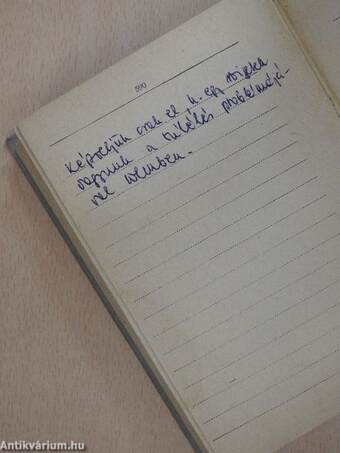 590
Képzeljük csak el h. egy
vagyunk a túlélés problémájá-
val szemben.
Antikvárium.hu